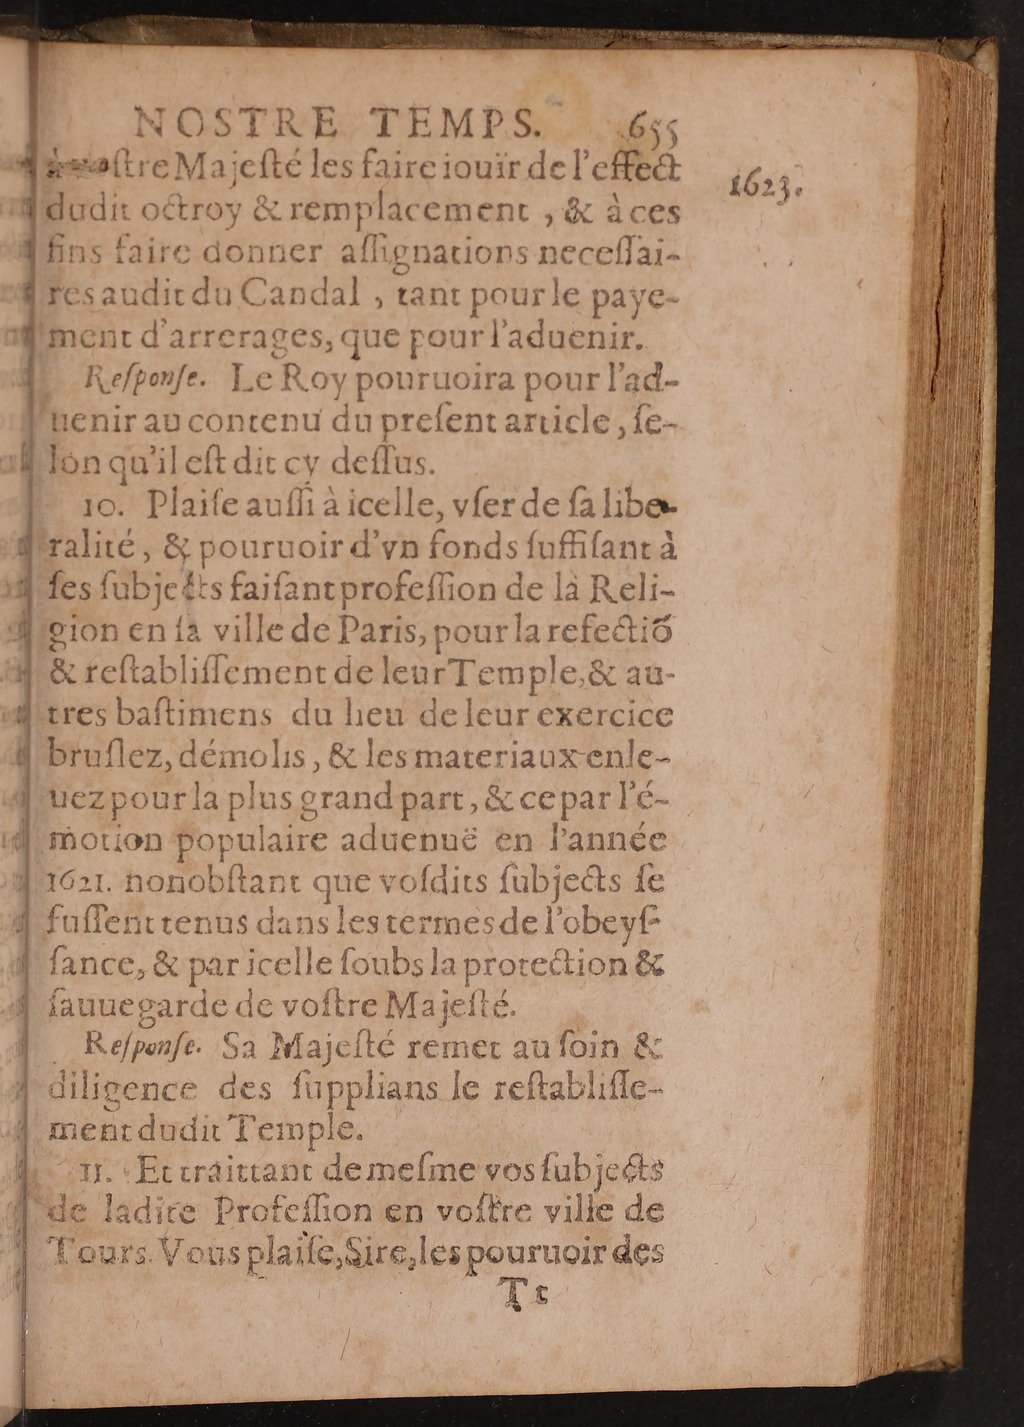 NOSTRE TEMPS. 655
à vostre Majeſté les faire iouïr de l'effect
1623.
dudit octroy & remplacement, & à ces
fins faire donner aſſignations neceſſai-
res audit du Candal, tant pour le paye-
ment d'arrerages, que pour l'aduenir.
Reſponſe. Le Roy pouruoira pour l'ad-
uenir au contenu du preſent article, ſe-
lon qu'il eſt dit cy deſſus.
10. Plaiſe auſſi à icelle, vſer de ſa libe-
ralité, & pouruoir d'vn fonds ſuffiſant à
ſes ſubjects faiſant profeſſion de la Reli-
gion en ſa ville de Paris, pour la refectiõ
& reſtabliſſement de leur Temple, & au-
tres baſtimens du lieu de leur exercice
bruſlez, démolis, & les materiaux enle-
uez pour la plus grand part, & ce par l'é-
motion populaire aduenuë en l'année
1621. nonobſtant que voſdits ſubjects ſe
fuſſent tenus dans les termes de l'obeyſ-
ſance, & par icelle ſoubs la protection &
ſauuegarde de voſtre Majeſté.
Reſponſe. Sa Majeſté remet au ſoin &
diligence des ſupplians le reſtabliſſe-
ment dudit Temple.
11. Et traittant de meſme vos ſubjects
de ladite Profeſſion en voſtre ville de
Tours. Vous plaiſe, Sire, les pouruoir des
Tt